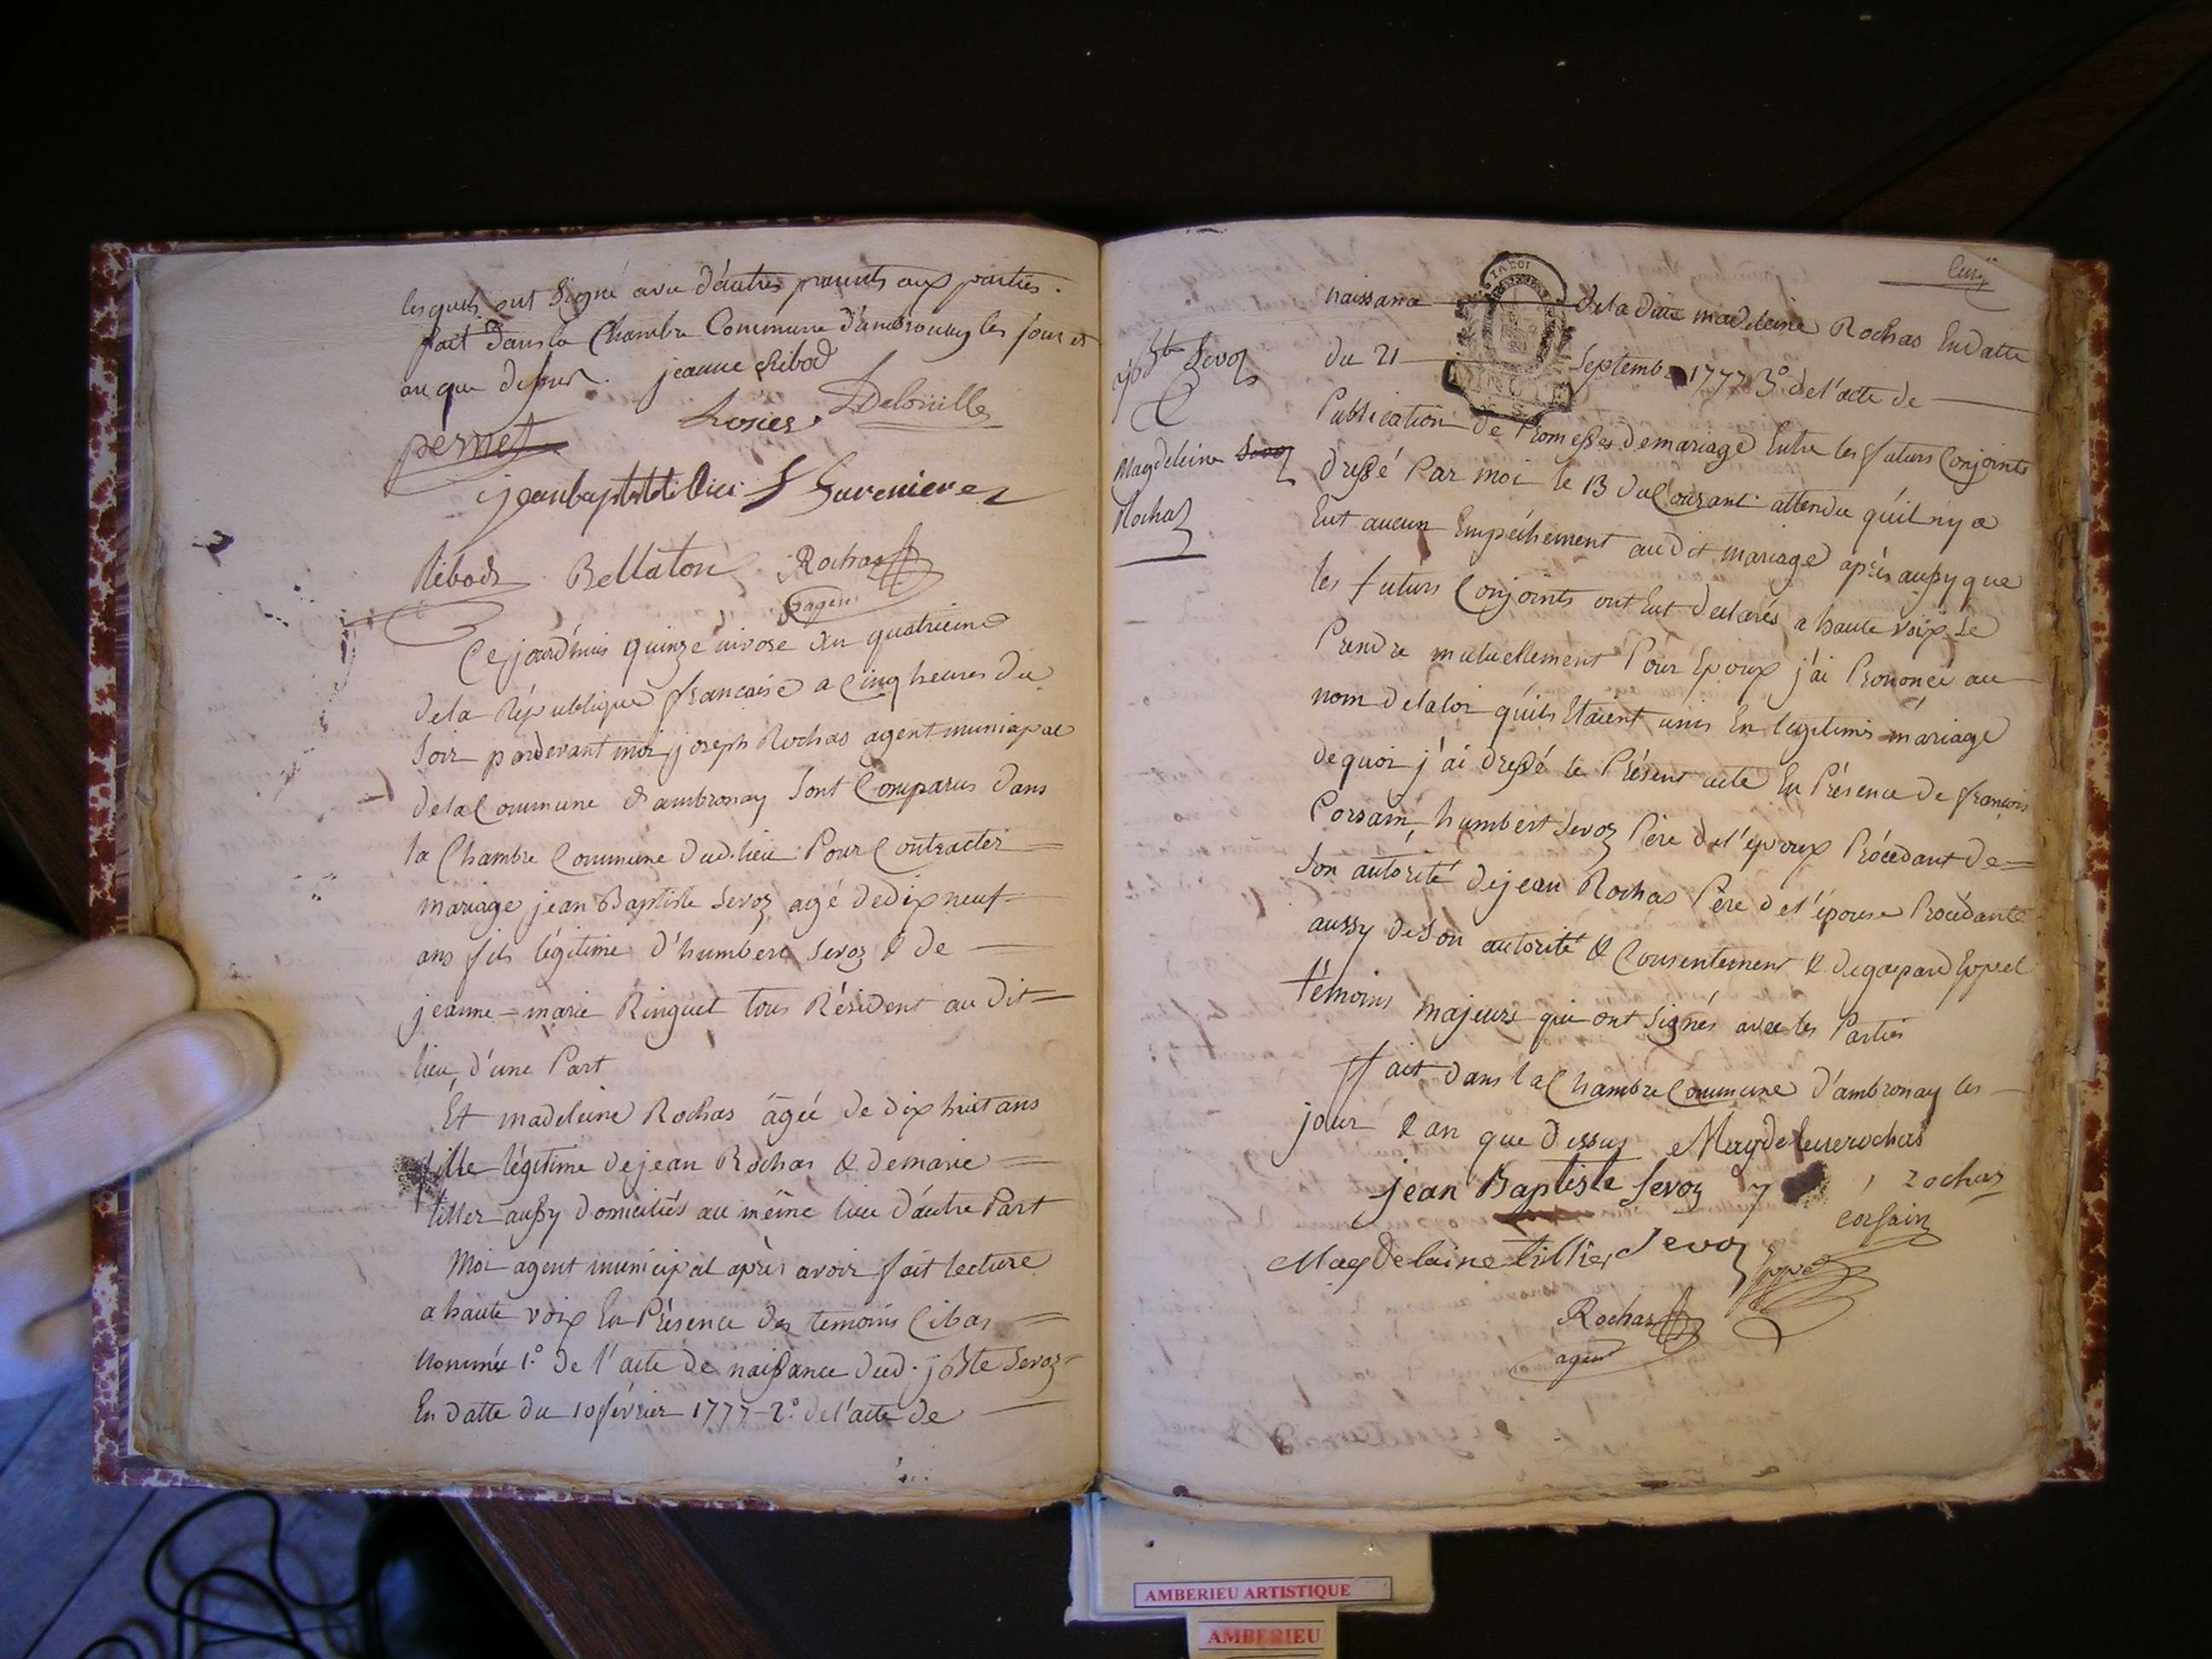 lesquels ont Signé avec d'autres parents aux parties.
fait dans la Chambre Commune d'ambronay les jour et
an que dessus. jeanne Ribod
pernet Rosier Delouille
jean baptiste tillier
Ribod Bellaton Rochas
agent
Cejourd'huis quinze nivose An quatrieme
dela République francaise a Cinq heures du
Soir pardevant moi joseph Rochas agent municipal
dela Commune d'ambronay Sont Comparus dans
la Chambre Commune dud. lieu Pour Contracter
mariage jean Baptiste Sevoz agé dedix neuf
ans fils légitime d'humbert Sevoz & de
jeanne-marie Ringuet tous Résident au dit
lieu, d'une Part
Et madeleine Rochas âgée de dix huit ans
fille légitime dejean Rochas & demarie
tillier aussy domiciliés au même lieu d'autre Part
Moi agent municipal après avoir fait lecture
a haute voix En Présence des temoins Cibas
Nommés 1º. de l'acte de naissance dud. jBste Sevoz
En datte du 10 février 1777 2º. de l'acte de
naissance dela dite madeleine Rochas En datte
du 21 Septembre 1777 3º. de l'acte de
jBte Sevoz
Magdeleine Sevoz
Rochas
Publication de Promesses de mariage Entre les futurs Conjoints
dressé Par moi le 13 du Courant attendu qu'il ny a
Eut aucun Empêchement audit mariage après aussy que
les futurs Conjoints ont Eut déclarés a haute voix Se
Prendre mutuellement Pour Epoux j'ai Prononcé au
nom delaloi qu'ils Etaient unis En légitime mariage
dequoi j'ai dressé le Présent acte En Présence de françois
Corsain, humbert Sevoz Père de l'époux Procédant de
Son autorité dejean Rochas Père de l'épouse Procédante
aussy de Son autorité & Consentement & de gaspard Eppel
témoins majeurs qui ont Signés avec les Parties
ffait dans la Chambre Commune d'ambronay les
jour & an que dessus Magdeleine rochas
jean Baptiste Sevoz j rochas
corsain
Magdelaine tillier Sevoz
Rochas
agent
AMBERIEU ARTISTIQUE
AMBERIEU